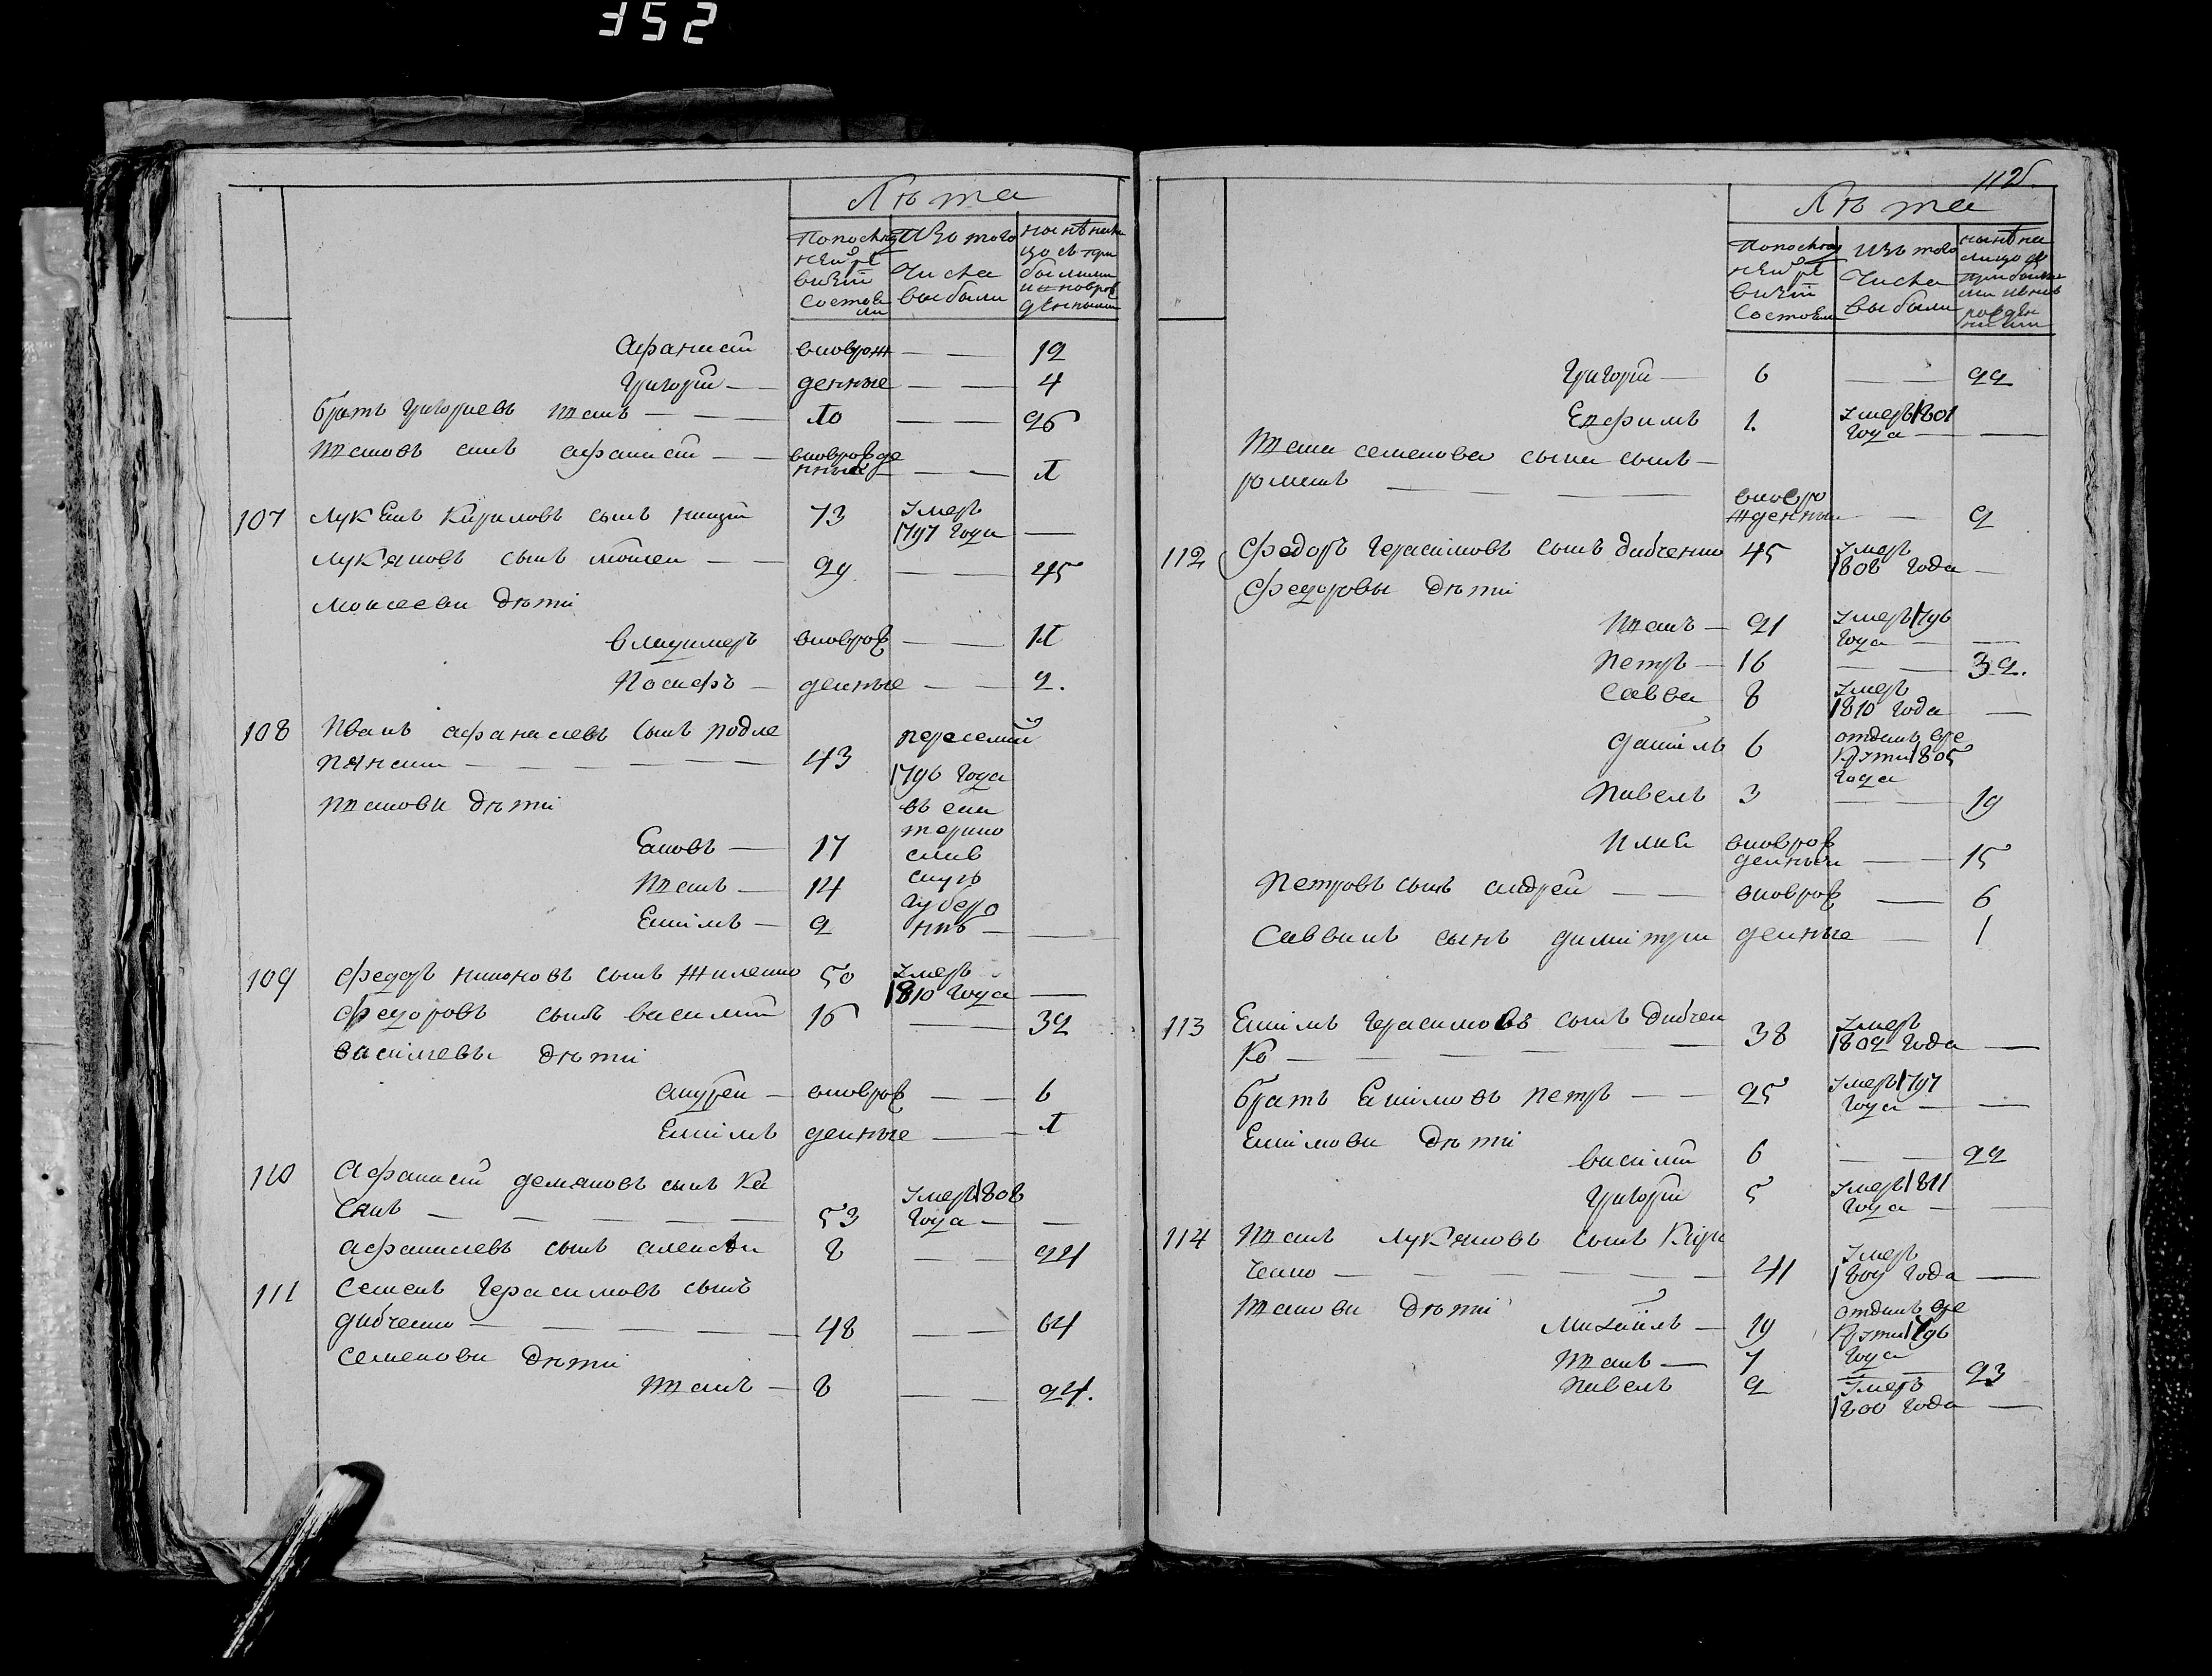 352
Лѣта
Попослед
ней ре
визіи
состоя
ли
Изъ того
числа
выбыли
Афанасій вновож — — 12
Григорій — денные — — 4
братъ Григориевъ Иванъ — — 10 — — 26
Ивановъ сынъ Афанасій — — вноврожде
нный — — 1
107 Лукянъ Кириловъ сынъ 73 умеръ
1797 года —
Лукяновъ сынъ Моисей — — 29 — — 45
Моисееви дѣти
Владимеръ вноврож — — 11
Иосифъ — денные — — 2.
108 Иванъ Афанасиевъ сынъ подле
43 переселий
1796 года
Иванови дѣти
въ ека
терино
слав
скую
губеро
нію —
Яковъ — 17
Иванъ — 14
Екимъ — 2 —
109 Федоръ сынъ Жиленко 50 умеръ
1810 года —
Федоровъ сынъ Василий 16 — — 32
Василиевы дѣти
Андрей — вноврож — — 6
Екимъ денные — — 1
110 Афанасій Демяновъ сынъ Ка
— — — — — 53 умеръ 1808
года — —
Афанасиевъ сынъ Алексѣй 8 — — 24
111 Семенъ Герасимовъ сынъ
Дибченко — — — — 48 — — 64
Семенови дѣти
Иванъ — 8 — — 24.
112
Лѣта
Попослед
ней ре
визіи
состояли
Изъ того
числа
выбыли
Григорій — 6 — — 22
Ефимъ 1. умеръ 1801
года — —
Ивана Семенова сына сынъ —
Романъ — — — — вновро
жденный — 2
112 Федоръ Герасимовъ сынъ Дибченко 45 умеръ
1808 года —
Федоровы дѣти
Иванъ — 21 умеръ 1796
года — —
Петръ — 16 — — 32.
Савва 8 умеръ
1810 года —
Даніилъ 6 отданъ вре
круты 1805
года
Павелъ 3 — — 19
Илия вноврож
денный — — 15
Петровъ сынъ Андрей — — вноврож — 6
Саввинъ сынъ Димитри денные — 1
113 Екимъ Герасимовъ сынъ Дибчен
ко — — — — — 38 умеръ
1802 года —
братъ Екимовъ Петръ — — 25 умеръ 1797
года — —
Екимови дѣти
Василий 6 — — 22
Григорій 5 умеръ 1811
года — —
114 Иванъ Лукяновъ сынъ Кири
ченко — — — — — 41 умеръ
1809 года —
Иванови дѣти
Михайлъ — 19 отданъ вре
круты 1796
года
Иванъ — 7 — 23
Павелъ 2 умеръ
1800 года —